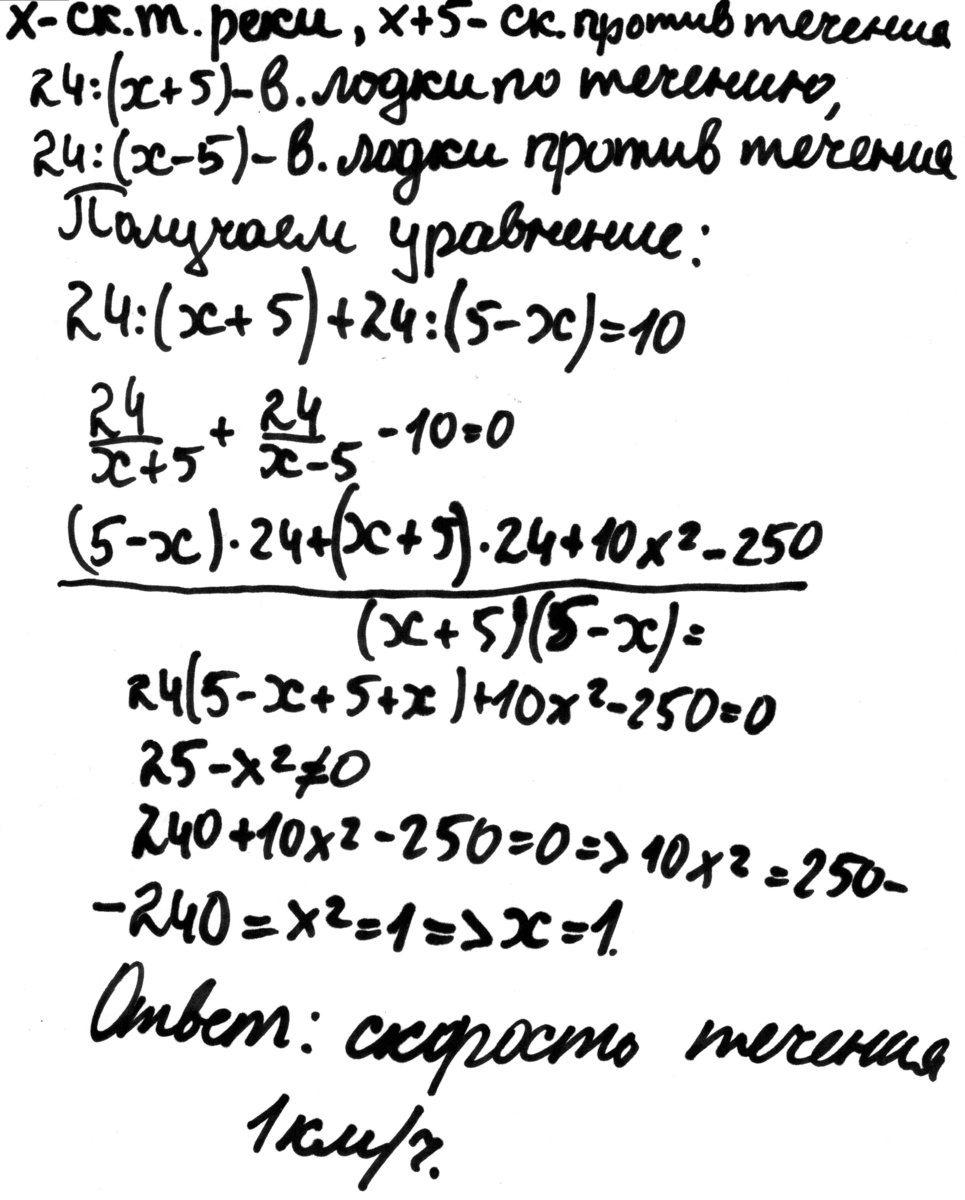 x-ск.т. реки, x+5- ск. против течения
24:(x+5)-в. лодки по течению,
24:(x-5)-в. лодки против течения
Получаем уравнение:
24:(x+5)+24:(5-x)=10
24/x+5 + 24/x-5 -10=0
(5-x)·24+(x+5)·24+10x²-250
(x+5)(5-x)=
24(5-x+5+x)+10x²-250=0
25-x²≠0
240+10x²-250=0=>10x²=250-
-240=x²=1=>x=1.
Ответ: скорость течения
1км/ч.